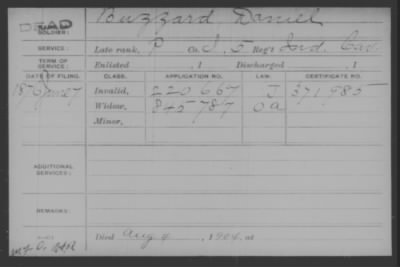 DEAD
SOLDIER: Buzzard Daniel
SERVICE: Late rank, P Co. I, 5 Reg't Ind. Cav.
TERM OF SERVICE: Enlisted , 1 Discharged , 1
DATE OF FILING. CLASS. APPLICATION NO. LAW. CERTIFICATE NO.
187 June 7 Invalid, 220667 J 371,985
Widow, 845787 O a
Minor,
ADDITIONAL SERVICES:
REMARKS:
Died Aug 4, 1904, at